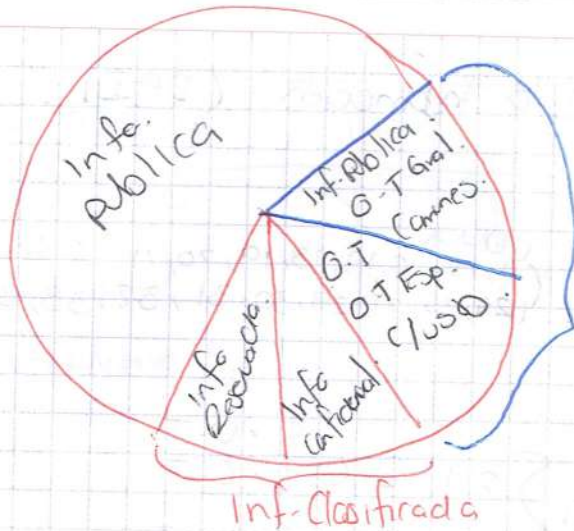 Info.
Pública
Inf. Pública
O.T Gral.
Comunes.
O.T
O.T Esp.
C/USO.
Info
Reservada.
Info
Confidencial
Inf. Clasificada